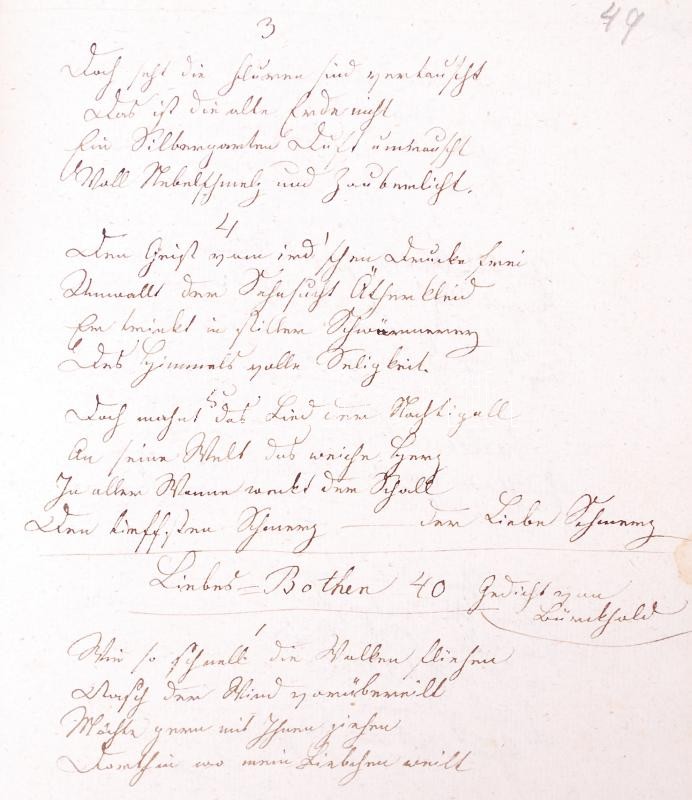 49
3
Doch seht die Fluren sind vertauscht
Das ist die alte Erde nicht
Ein Silbergarten Duft umrauscht
Voll Nebelschmelz und Zauberlicht.
4
Den Geist vom ird'schen Drucke frei
Umwallt der Sehnsucht Ätherkleid
Er trinkt in stiller Schwärmerey
Des Himmels volle Seligkeit.
5
Doch mahnt das Lied der Nachtigall
An seine Welt das weiche Herz
In aller Wonne weckt der Schall
Den tieffsten Schmerz — der Liebe Schmerz
Liebes=Bothen 40 Gedicht von
Bürckhold
1
Wie so schnell die Wolken fliehen
Rasch der Wind vorübereilt
Möchte gern mit Ihnen ziehen
Dorthin wo mein Liebchen weilt